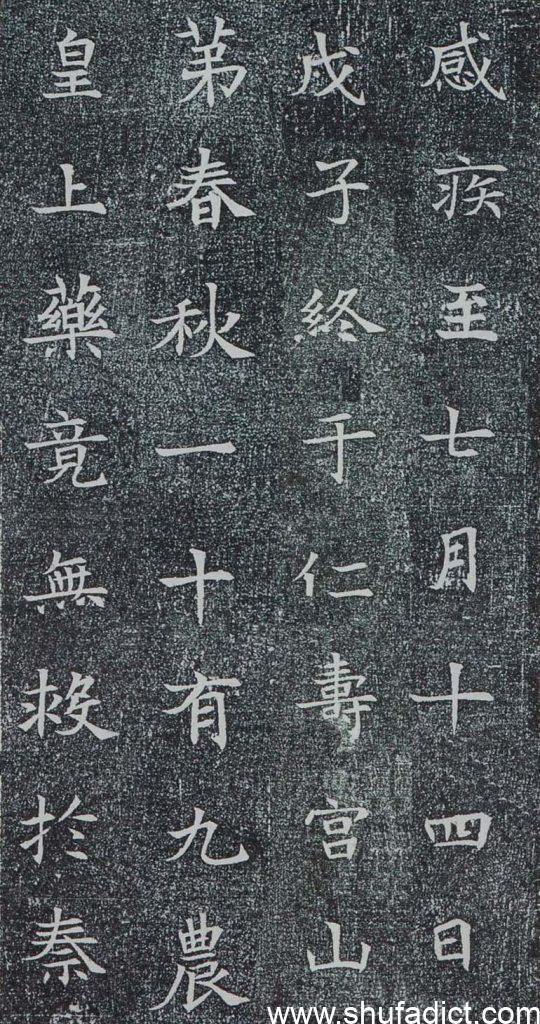 感疾至七月十四日
戊子終于仁壽宮山
苐春秋一十有九農
皇上藥竟無救於秦
www.shufadict.com